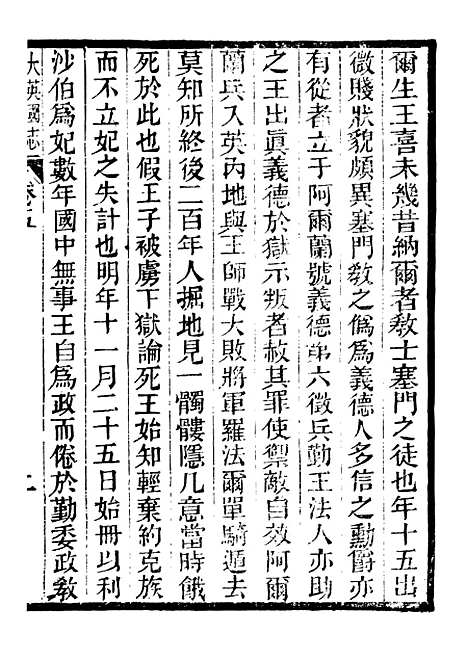 爾生王喜未幾昔納爾者敎士塞門之徒也年十五出
微賤狀貌頗異塞門敎之僞爲義德人多信之勳爵亦
有從者立于阿爾蘭號義德第六徵兵勤王法人亦助
之王出眞義德於獄示叛者赦其罪使禦敵自效阿爾
蘭兵入英內地與王師戰大敗將軍羅法爾單騎遁去
莫知所終後二百年人掘地見一髑髏隱几意當時餓
死於此也假王子被虜下獄論死王始知輕棄約克族
而不立妃之失計也明年十一月二十五日始冊以利
沙伯爲妃數年國中無事王自爲政而倦於勤委政敎
大英國志 卷五